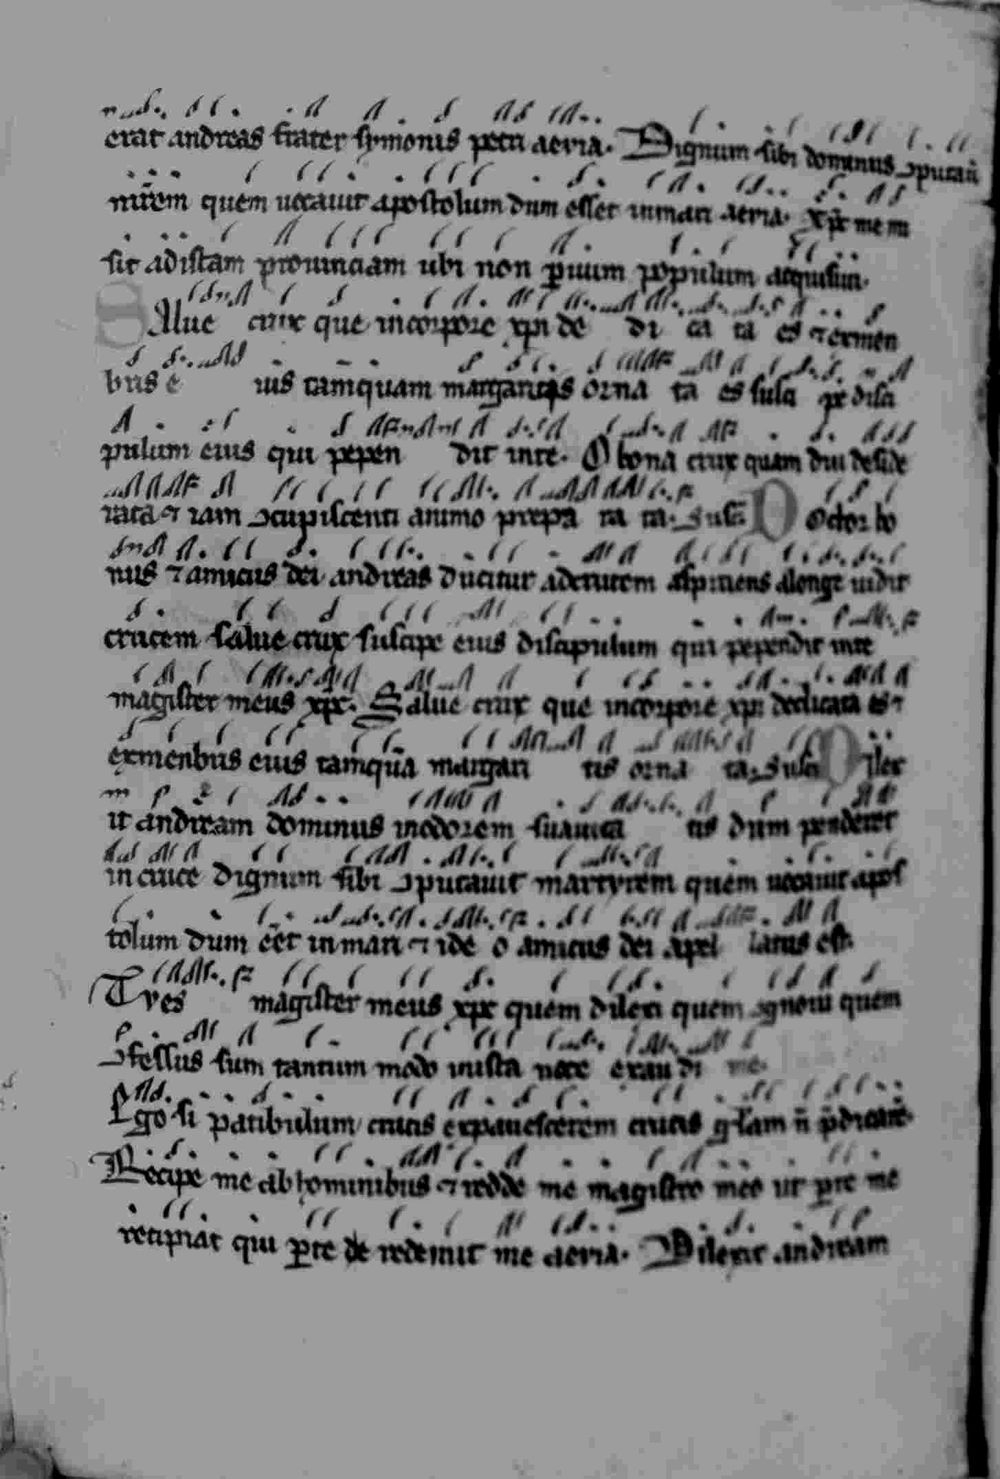 erat andreas frater symonis petri aevia. Dignum sibi dominus ɔputauit
mrēm quem uocauit apostolum dum esset in mari aevia. xp̄c me mi
sit ad istam prouinciam ubi non paruum populum acquisiui.
Salue crux que in corpore xpi de di ca ta es ⁊ ex mem
bris e ius tamquam margaritis orna ta es susci pe disci
pulum eius qui pepen dit in te. O bona crux quam diu deside
rata ⁊ iam ɔcupiscenti animo prepa ra ta. Suscī Doctor bo
nus ⁊ amicus dei andreas ducitur ad crucem aspiciens a longe uidit
crucem salue crux suscipe eius discipulum qui pependit in te
magister meus xpc. Salue crux que in corpore xpi dedicata es ⁊
ex membris eius tamquā margari tis orna ta. Susci Dilex
it andream dominus in odorem suauita tis dum penderet
in cruce dignum sibi ɔputauit martyrem quem uocauit apos
tolum dum eēt in mari ⁊ ide o amicus dei apel latus est.
Tu es magister meus xpc quem dilexi quem ɔgnoui quem
ɔfessus sum tantum modo in ista uoce exau di me.
Ego si patibulum crucis expauescerem crucis gl̄am n̄ p̄dicarē.
Recipe me ab hominibus ⁊ redde me magistro meo ut per te me
recipiat qui per te de redemit me aevia. Dilexit andream